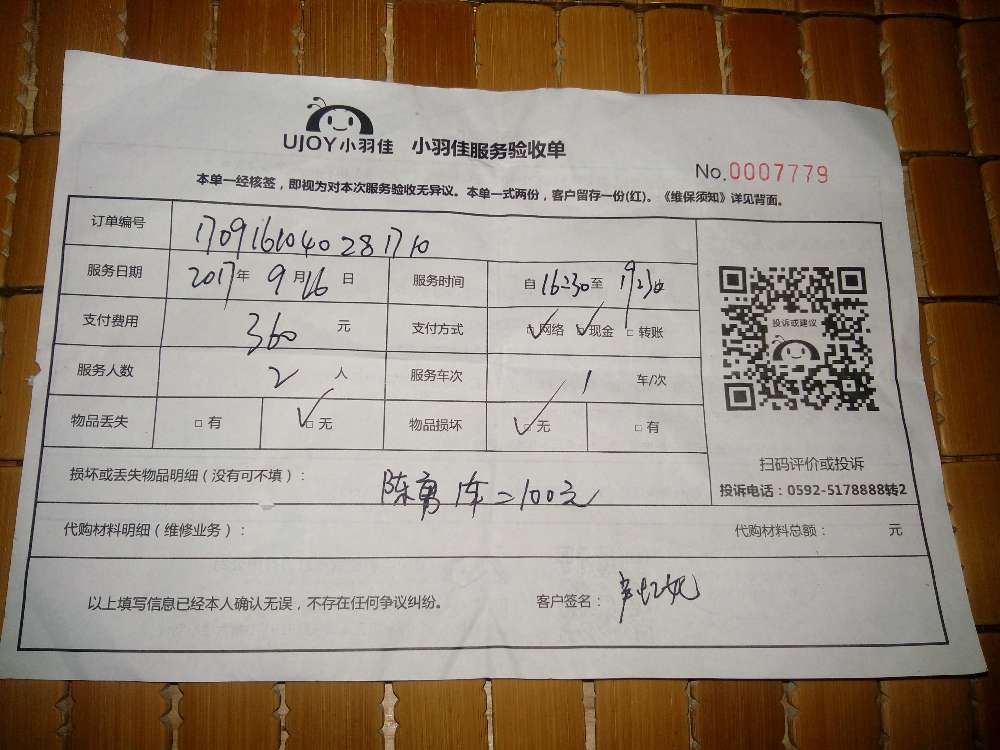 UJOY小羽佳 小羽佳服务验收单
No.0007779
本单一经核签，即视为对本次服务验收无异议。本单一式两份，客户留存一份(红)。《维保须知》详见背面。
订单编号 1709161040281710
服务日期 2017年9月16日 服务时间 自16:30至19:30
支付费用 360元 支付方式 □网络 □现金 □转账
投诉或建议
服务人数 2人 服务车次 1 车/次
物品丢失 □有 □无 物品损坏 □无 □有
扫码评价或投诉
损坏或丢失物品明细（没有可不填）： 陈勇 车=100元
投诉电话：0592-5178888转2
代购材料明细（维修业务）： 代购材料总额： 元
以上填写信息已经本人确认无误，不存在任何争议纠纷。 客户签名：